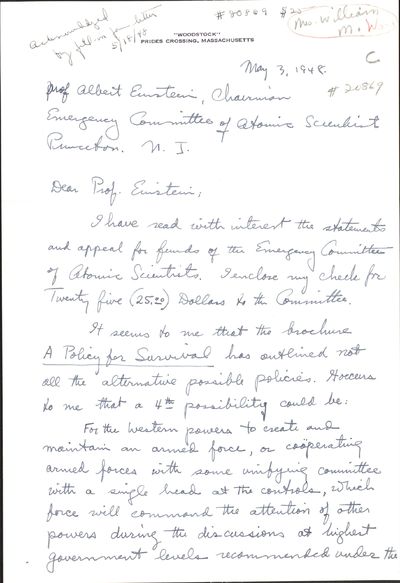 acknowledged
by follow form letter
5/18/48
#20869 $25
Mrs. William
M. W
"WOODSTOCK"
PRIDES CROSSING, MASSACHUSETTS
C
May 3, 1948.
#20869
Prof Albert Einstein, Chairman
Emergency Committee of Atomic Scientist
Princeton. N. J.
Dear Prof. Einstein,
I have read with interest the statements
and appeal for funds of the Emergency Committee
of Atomic Scientists. I enclose my check for
Twenty five (25.00) Dollars to the Committee.
It seems to me that the brochure
A Policy for Survival has outlined not
all the alternative possible policies. It occurs
to me that a 4th possibility could be:
For the Western powers to create and
maintain an armed force, or coöperating
armed forces with some unifying committee
with a single head at the controls, which
force will command the attention of other
powers during the discussions at highest
government levels recommended under the